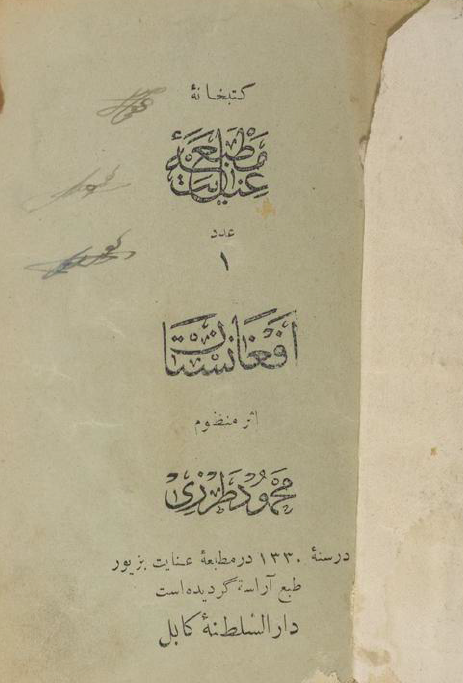 کتبخانهٔ
مطبعهٔ
عنایت
عدد
۱
افغانستان
اثر منظوم
محمود طرزی
درسنهٔ ۱۳۳۰ در مطبعهٔ عنایت بزیور
طبع آراسته گردیده است
دار السلطنهٔ کابل